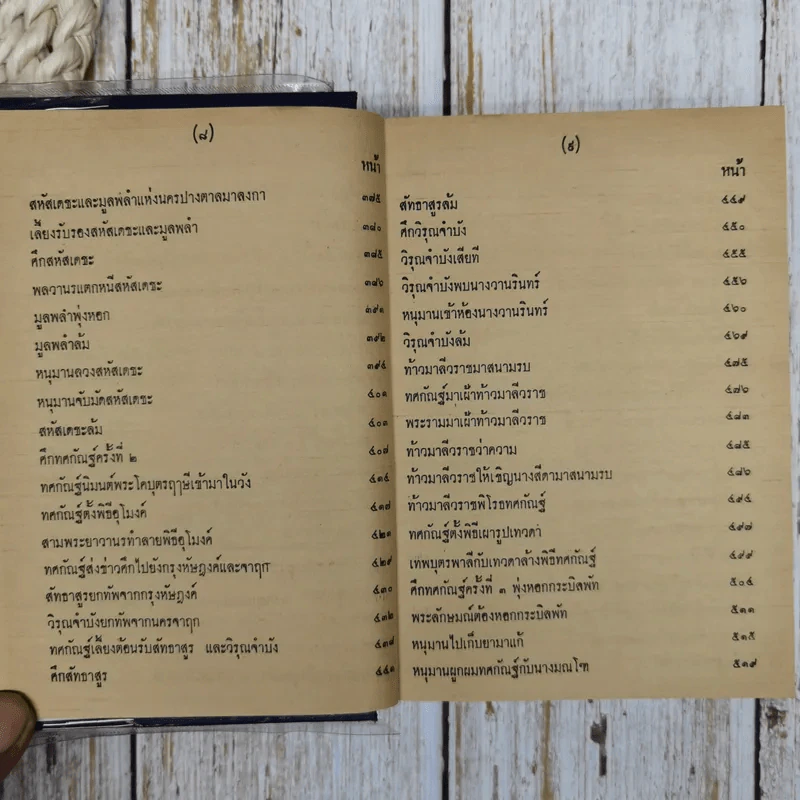 (๘)
หน้า
สหัสเดชะและมูลพลำแห่งนครปางตาลมาลงกา ๓๗๕
เลี้ยงรับรองสหัสเดชะและมูลพลำ ๓๘๐
ศึกสหัสเดชะ ๓๘๕
พลวานรแตกหนีสหัสเดชะ ๓๘๖
มูลพลำพุ่งหอก ๓๙๑
มูลพลำล้ม ๓๙๒
หนุมานลวงสหัสเดชะ ๓๙๔
หนุมานจับมัดสหัสเดชะ ๔๐๑
สหัสเดชะล้ม ๔๐๓
ศึกทศกัณฐ์ครั้งที่ ๒ ๔๐๗
ทศกัณฐ์นิมนต์พระโคบุตรฤๅษีเข้ามาในวัง ๔๑๔
ทศกัณฐ์ตั้งพิธีอุโมงค์ ๔๑๗
สามพระยาวานรทำลายพิธีอุโมงค์ ๔๒๑
ทศกัณฐ์ส่งข่าวศึกไปยังกรุงหัษฎงค์และจาฤก ๔๒๙
สัทธาสูรยกทัพจากกรุงหัษฎงค์ ๔๓๐
วิรุณจำบังยกทัพจากนครจาฤก ๔๓๒
ทศกัณฐ์เลี้ยงต้อนรับสัทธาสูร และวิรุณจำบัง ๔๓๘
ศึกสัทธาสูร ๔๔๑
(๙)
หน้า
สัทธาสูรล้ม ๔๔๙
ศึกวิรุณจำบัง ๔๕๐
วิรุณจำบังเสียที ๔๕๕
วิรุณจำบังพบนางวานรินทร์ ๔๕๖
หนุมานเข้าห้องนางวานรินทร์ ๔๖๐
วิรุณจำบังล้ม ๔๖๙
ท้าวมาลีวราชมาสนามรบ ๔๗๕
ทศกัณฐ์มาเฝ้าท้าวมาลีวราช ๔๗๖
พระรามมาเฝ้าท้าวมาลีวราช ๔๘๓
ท้าวมาลีวราชว่าความ ๔๘๕
ท้าวมาลีวราชให้เชิญนางสีดามาสนามรบ ๔๘๖
ท้าวมาลีวราชพิโรธทศกัณฐ์ ๔๙๔
ทศกัณฐ์ตั้งพิธีเผารูปเทวดา ๔๙๗
เทพบุตรพาลีกับเทวดาล้างพิธีทศกัณฐ์ ๔๙๙
ศึกทศกัณฐ์ครั้งที่ ๓ พุ่งหอกกระบิลพัท ๕๐๔
พระลักษมณ์ต้องหอกกระบิลพัท ๕๑๑
หนุมานไปเก็บยามาแก้ ๕๑๕
หนุมานผูกผมทศกัณฐ์กับนางมณโฑ ๕๑๙